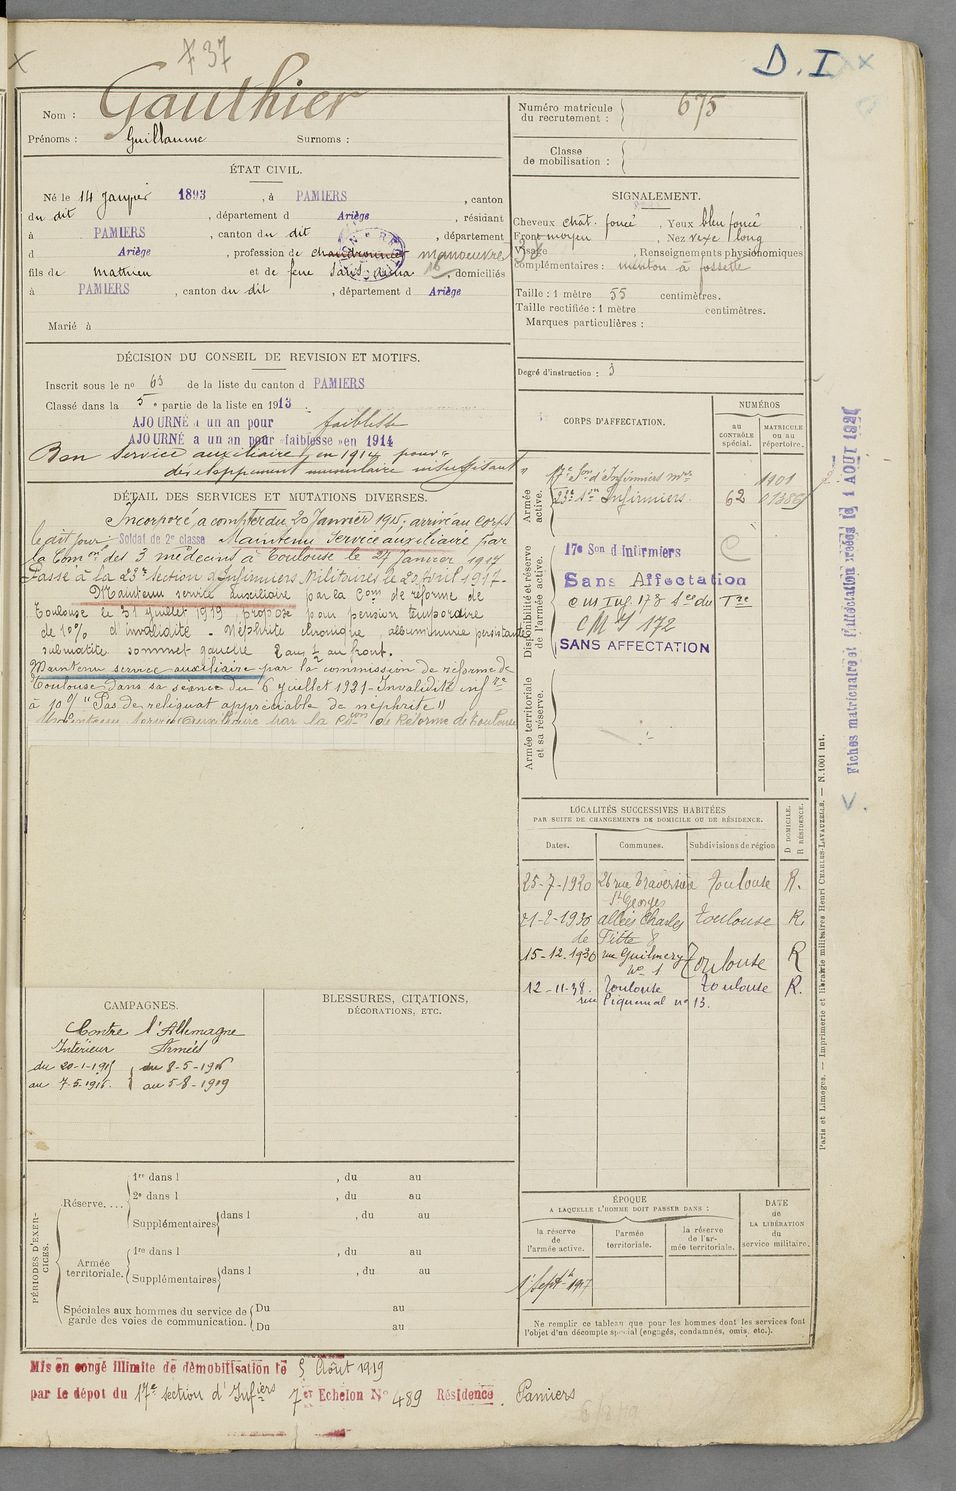 737
D. I
Nom : Gauthier
Prénoms : Guillaume Surnoms :
ÉTAT CIVIL.
Né le 14 Janvier 1893, à PAMIERS, canton
du dit, département d Ariège, résidant
à PAMIERS, canton du dit, département
d Ariège, profession de manoeuvre
fils de Mathieu et de feue Paris domiciliés
à PAMIERS, canton du dit, département d Ariège
Marié à
DÉCISION DU CONSEIL DE REVISION ET MOTIFS.
Inscrit sous le no 63 de la liste du canton d PAMIERS
Classé dans la 5e partie de la liste en 1913
AJOURNÉ à un an pour faiblesse
AJOURNÉ à un an pour «faiblesse» en 1914
Bon service auxiliaire en 1914 pour "
développement musculaire insuffisant "
DÉTAIL DES SERVICES ET MUTATIONS DIVERSES.
Incorporé à compter du 20 Janvier 1915, arrivé au Corps
le dit jour. Soldat de 2e classe Maintenu Service auxiliaire par
la Comon des 3 médecins à Toulouse le 27 Janvier 1917
Passé à la 23e section d'Infirmiers Militaires le 20 Avril 1917-
Maintenu service auxiliaire par la Com de réforme de
Toulouse le 31 juillet 1919, proposé pour pension temporaire
de 10% d'invalidité - Néphrite chronique, albuminurie persistante
submatité sommet gauche 2 ans ½ au front.
Maintenu service auxiliaire par la commission de réforme de
Toulouse dans sa séance du 6 juillet 1921 - Invalidité infre
à 10% "Pas de reliquat appréciable de néphrite"
Maintenu service auxiliaire par la Comon de Réforme de Toulouse
CAMPAGNES.
Contre l'Allemagne
Intérieur Armées
du 20-1-1915 du 8-5-1916
au 7-5-1916. au 5-8-1919
BLESSURES, CITATIONS,
DÉCORATIONS, ETC.
PÉRIODES D'EXERCICES.
Réserve....
1re dans l , du au
2e dans l , du au
Supplémentaires dans l , du au
Armée territoriale.
1re dans l , du au
Supplémentaires dans l , du au
Spéciales aux hommes du service de garde des voies de communication.
Du au
Du au
Mis en congé illimité de démobilisation le 5 Août 1919
par le dépôt du 17e section d'Infiers 7e Echelon No 489 Résidence. Pamiers
6/8/19
Numéro matricule
du recrutement : 675
Classe
de mobilisation :
SIGNALEMENT.
Cheveux chât. foncé, Yeux bleu foncé,
Front moyen, Nez vexe long
Visage , Renseignements physionomiques
complémentaires : menton à fossette
Taille : 1 mètre 55 centimètres.
Taille rectifiée : 1 mètre centimètres.
Marques particulières :
Degré d'instruction : 3
CORPS D'AFFECTATION.
NUMÉROS
au CONTRÔLE spécial.
MATRICULE ou au répertoire.
Armée active.
17e Son d'Infirmiers mres 1901
23e Son Infirmiers 62
Disponibilité et réserve de l'armée active.
17e Son d'Infirmiers C
Sans Affectation
CM J 172
SANS AFFECTATION
Armée territoriale et sa réserve.
LOCALITÉS SUCCESSIVES HABITÉES
PAR SUITE DE CHANGEMENTS DE DOMICILE OU DE RÉSIDENCE.
D DOMICILE.
R RÉSIDENCE.
Dates. Communes. Subdivisions de région
25-7-1920 26 rue Traversière Toulouse R.
St Georges
21-2-1930 allées Charles Toulouse R.
de Fitte 8
15-12-1930 rue Guilmery Toulouse R
no 1
12-11-38. Toulouse Toulouse R.
rue Piquemal no 13.
ÉPOQUE
A LAQUELLE L'HOMME DOIT PASSER DANS :
la réserve de l'armée active.
l'armée territoriale.
la réserve de l'armée territoriale.
DATE de LA LIBÉRATION du service militaire.
1er Septbre 1917
Ne remplir ce tableau que pour les hommes dont les services font
l'objet d'un décompte spécial (engagés, condamnés, omis, etc.).
Paris et Limoges. — Imprimerie et librairie militaires Henri CHARLES-LAVAUZELLE. — N. 1001 Int.